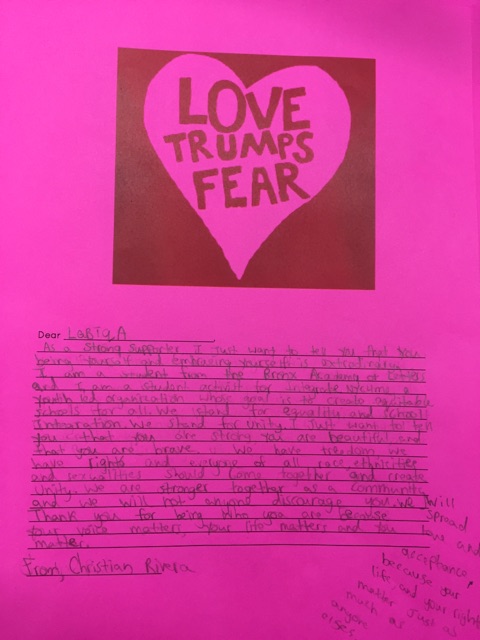 LOVE
TRUMPS
FEAR
Dear LGBTQA
As a strong supporter I Just want to tell you that you
being yourself and embracing yourself is extraordinary
I am a student from the Bronx Academy of Letters
and I am a student activist for Integrate NYC
youth led organization whose goal is to create equitable
schools for all. We stand for equality and school
Integration. We stand for unity. I Just want to tell
you that you are strong you are beautiful and
that you are brave. We have freedom we
have rights and everyone of all race, ethnicities
and sexualities should come together and create
Unity. We are stronger together as community
and we will not anyone discourage you. We will
Thank you for being who you are because
your voice matters, your life matters and you
matter.
From, Christian Rivera
spread
love and
acceptance,
because your
life and your rights
matter just as
much as
anyone
elses